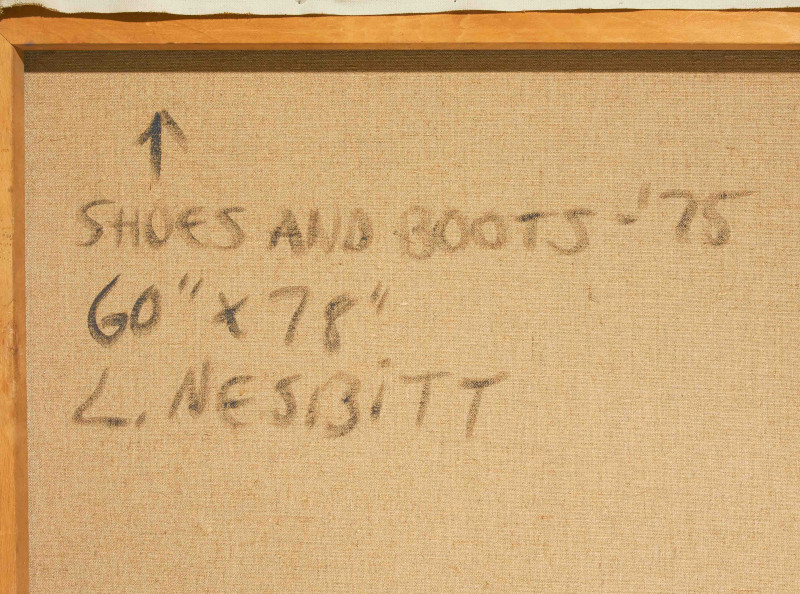 ↑
SHOES AND BOOTS - '75
60" x 78"
L. NESBITT